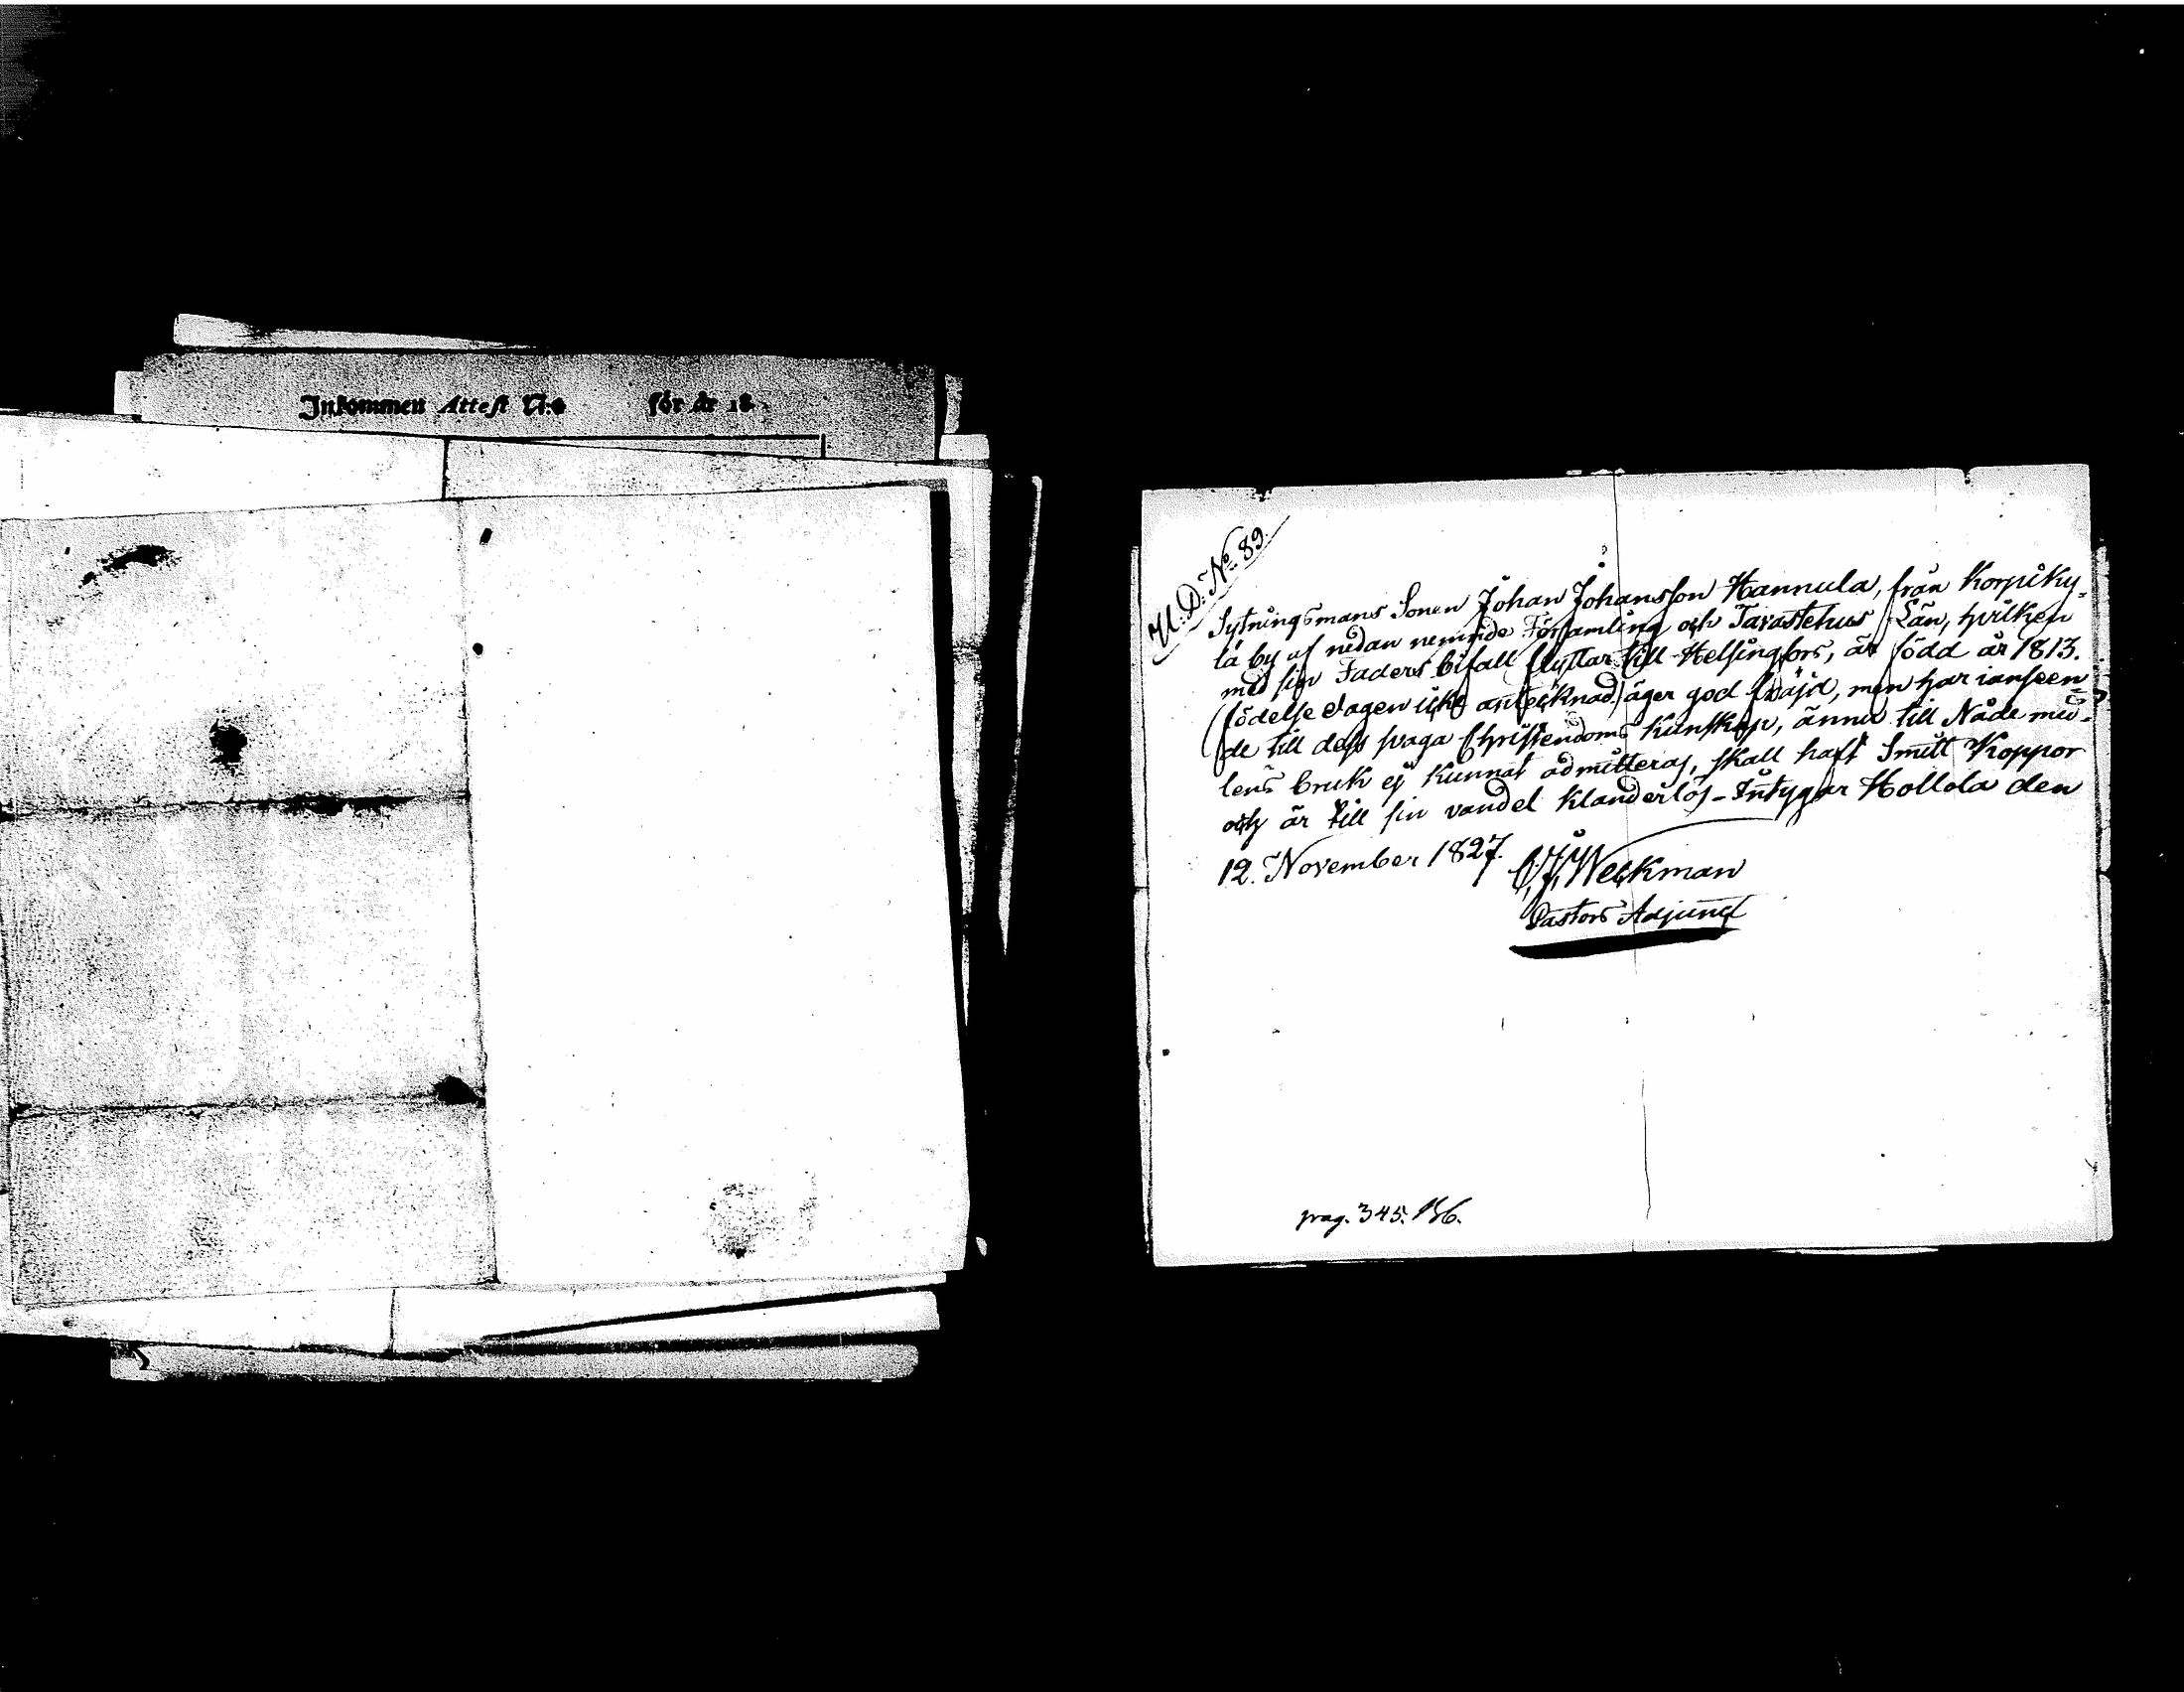 Inkommen Attest N:o för år 18
U. D. No 89.
Sytningsmans Sonen Johan Johansson Hannula, från Korpiky-
lä by af nedan nemnde Församling och Tavastehus Län, hvilken
med sin Faders bifall flyttar till Helsingfors, är född år 1813.
(födelse dagen icke antecknad) äger god fräjd, men har i anseen-
de till dess svaga Christendoms kunskap, ännu till Nådemed-
lens bruk ej kunnat admitteras, skall haft Smitt Koppor
och är till sin vandel klanderlös - Intygar Hollola den
12. November 1827.
C. J. Weckman
Pastors Adjunct
pag. 345. 186.